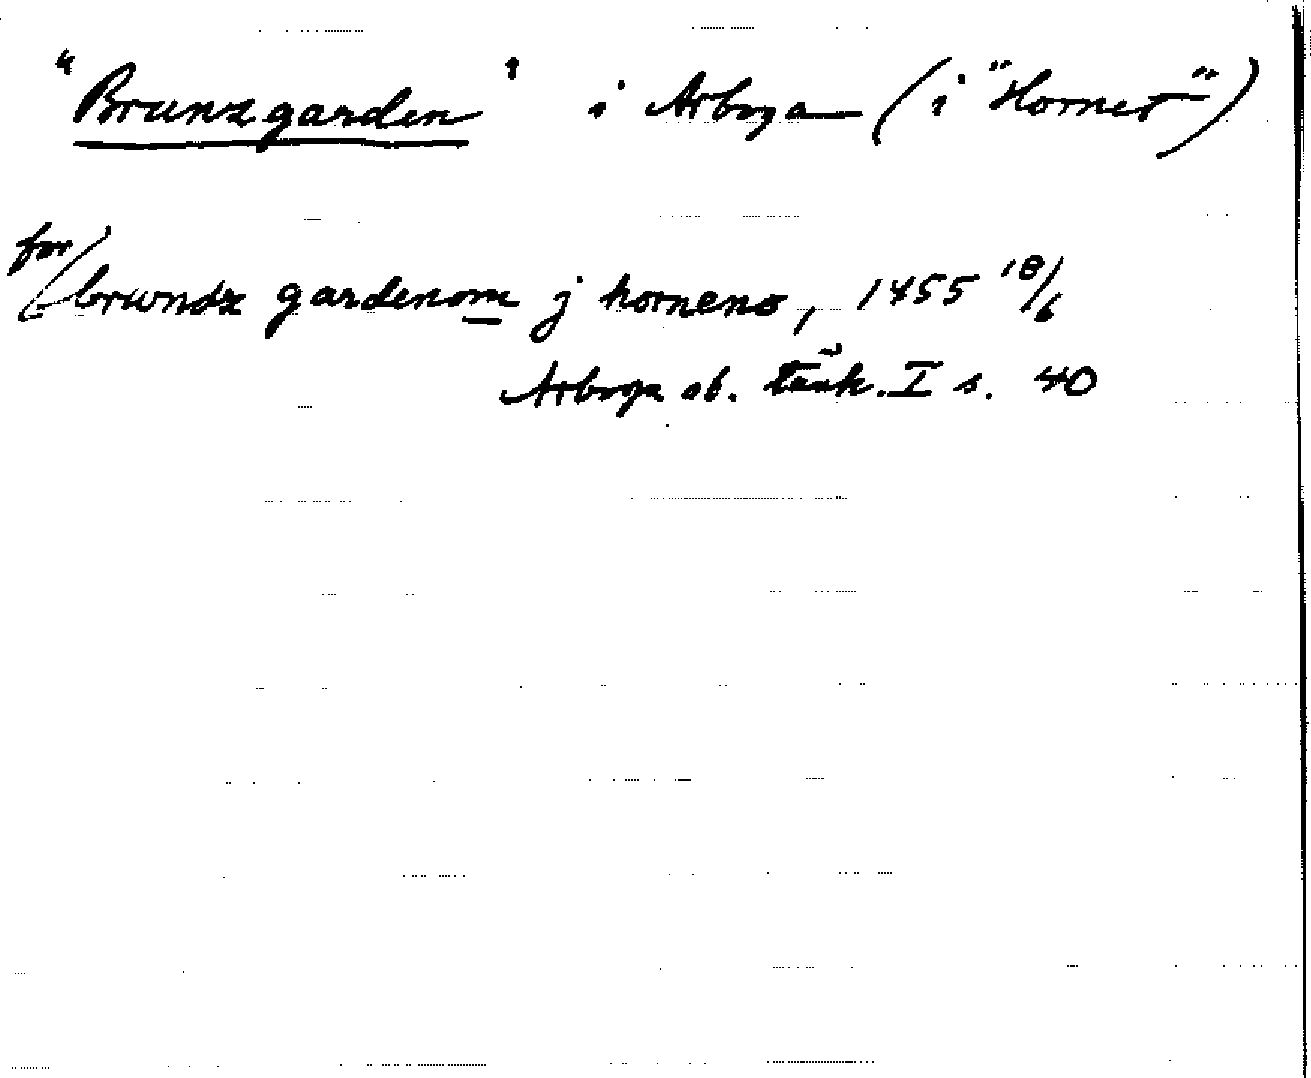 "Brunzgarden" i Arboga (i "Hornet")
for brwndz gardenom j horneno, 1455 18/6
Arboga sb. tänk. I s. 40